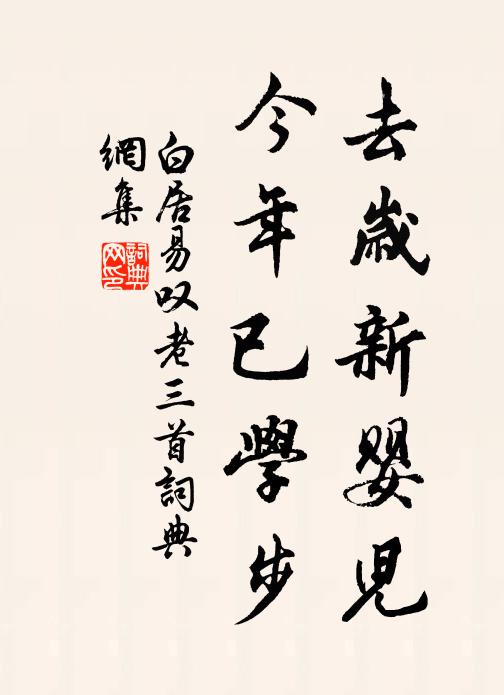 去歲新嬰児
今年已學步
白居易叹老三首詞典
網集
詞典网印